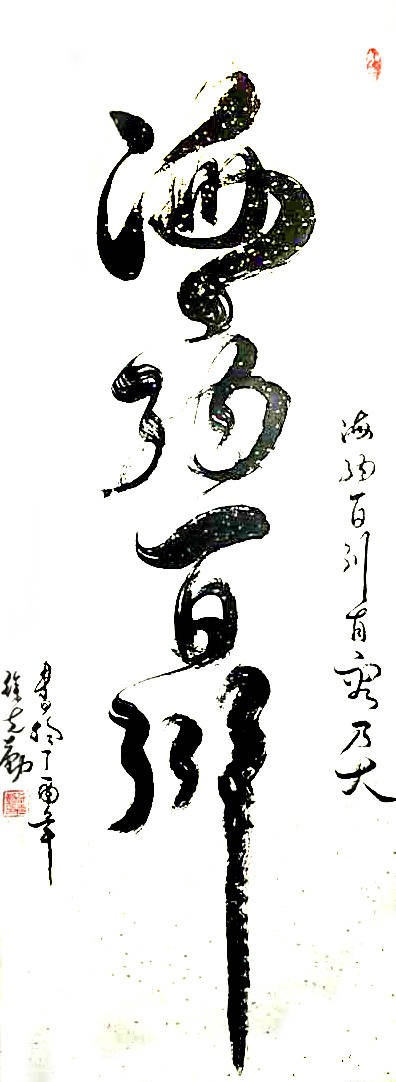 海纳百川
海纳百川有容乃大
書於丁酉年
徐克勤